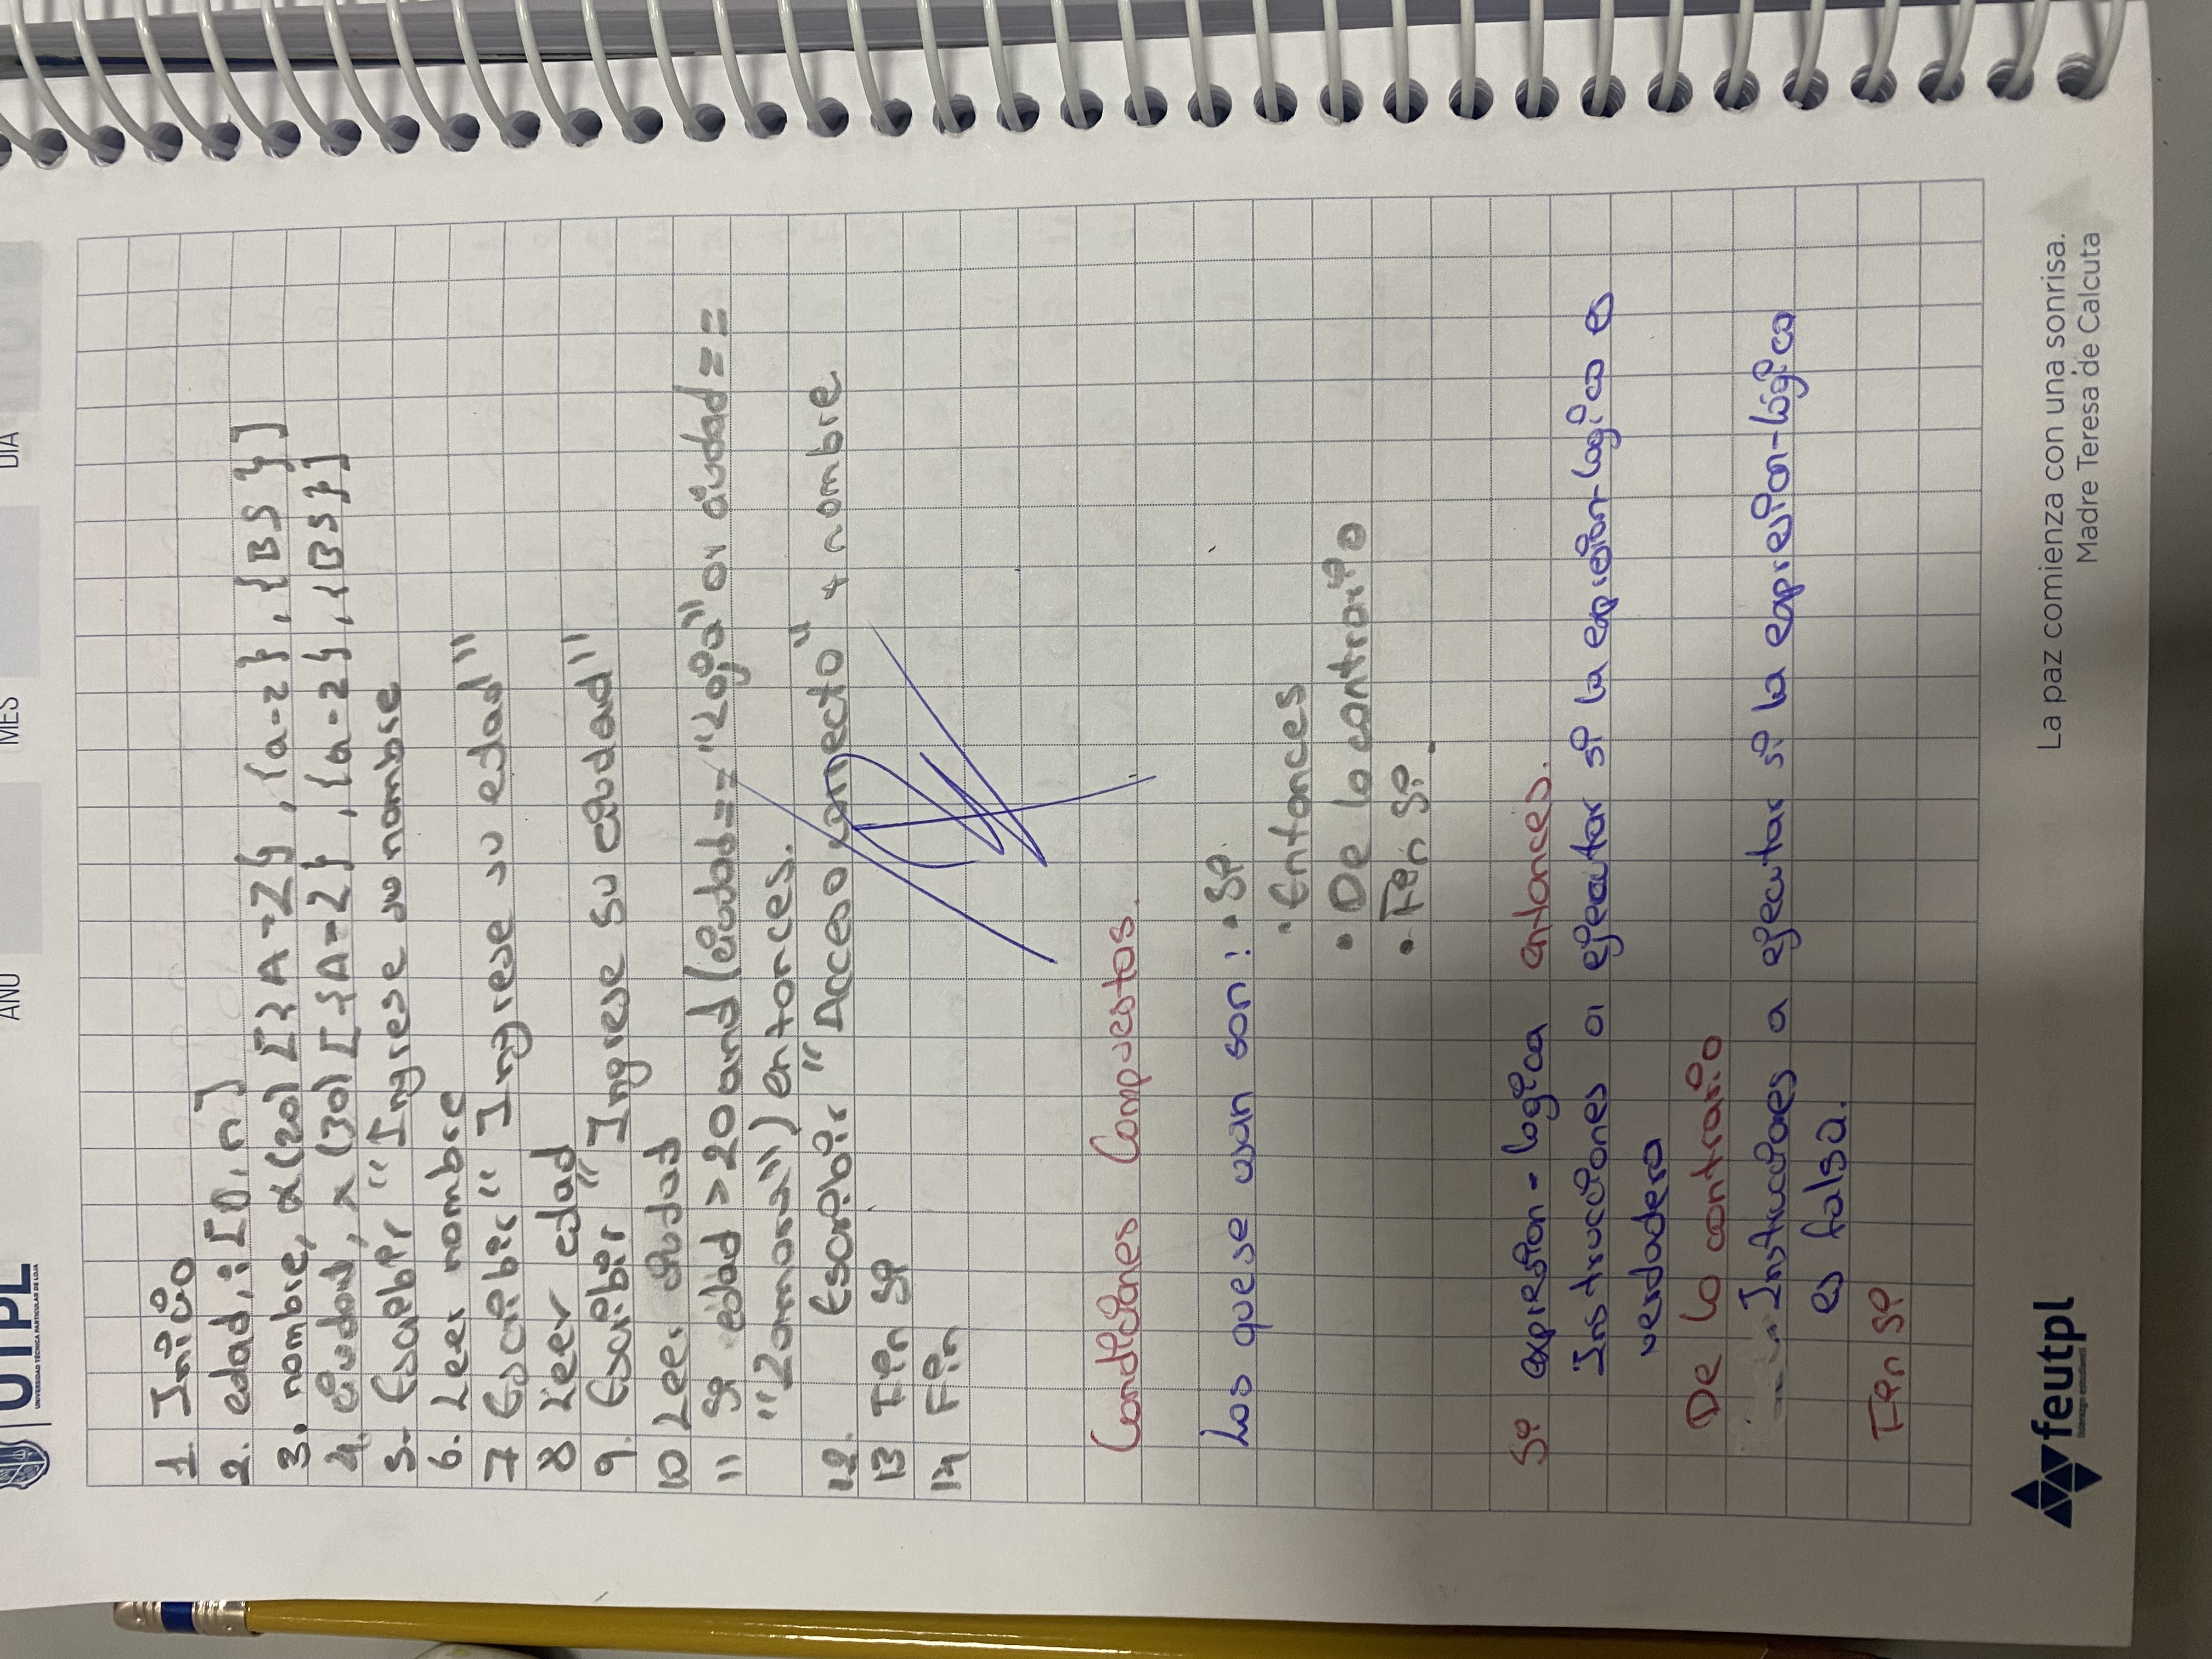 UTPL
UNIVERSIDAD TÉCNICA PARTICULAR DE LOJA
AÑO MES DÍA
1. Inicio
2. edad, i [0, n]
3. nombre, α (20) [{A-Z}, {a-z}, {BS}]
4. ciudad, α (30) [{A-Z}, {a-z}, {BS}]
5- Escribir "Ingrese su nombre
6. Leer nombre
7 Escribir "Ingrese su edad"
8 Leer edad
9. Escribir "Ingrese su ciudad"
10 Leer ciudad
11 Si edad > 20 and (ciudad == "Loja" or ciudad ==
"Zamora") entonces.
12. Escribir "Acceso correcto" + nombre
13 Fin Si
14 Fin
Condiciones Compuestas.
Los que se usan son: • Si
• Entonces
• De lo contrario
• Fin Si
Si expresion-logica entonces.
Instrucciones a ejecutar si la expresion-logica es
verdadera
De lo contrario
Instrucciones a ejecutar si la expresion-lógica
es falsa.
Fin Si
feutpl
liderazgo estudiantil
La paz comienza con una sonrisa.
Madre Teresa de Calcuta